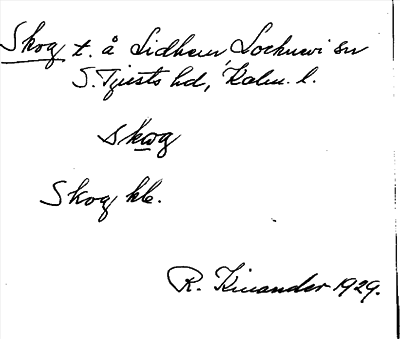 Skog t. å Lidhem, Locknevi sn
S. Tjusts hd, Kalm. l.
skog
Skog hle.
R. Kinander 1929.